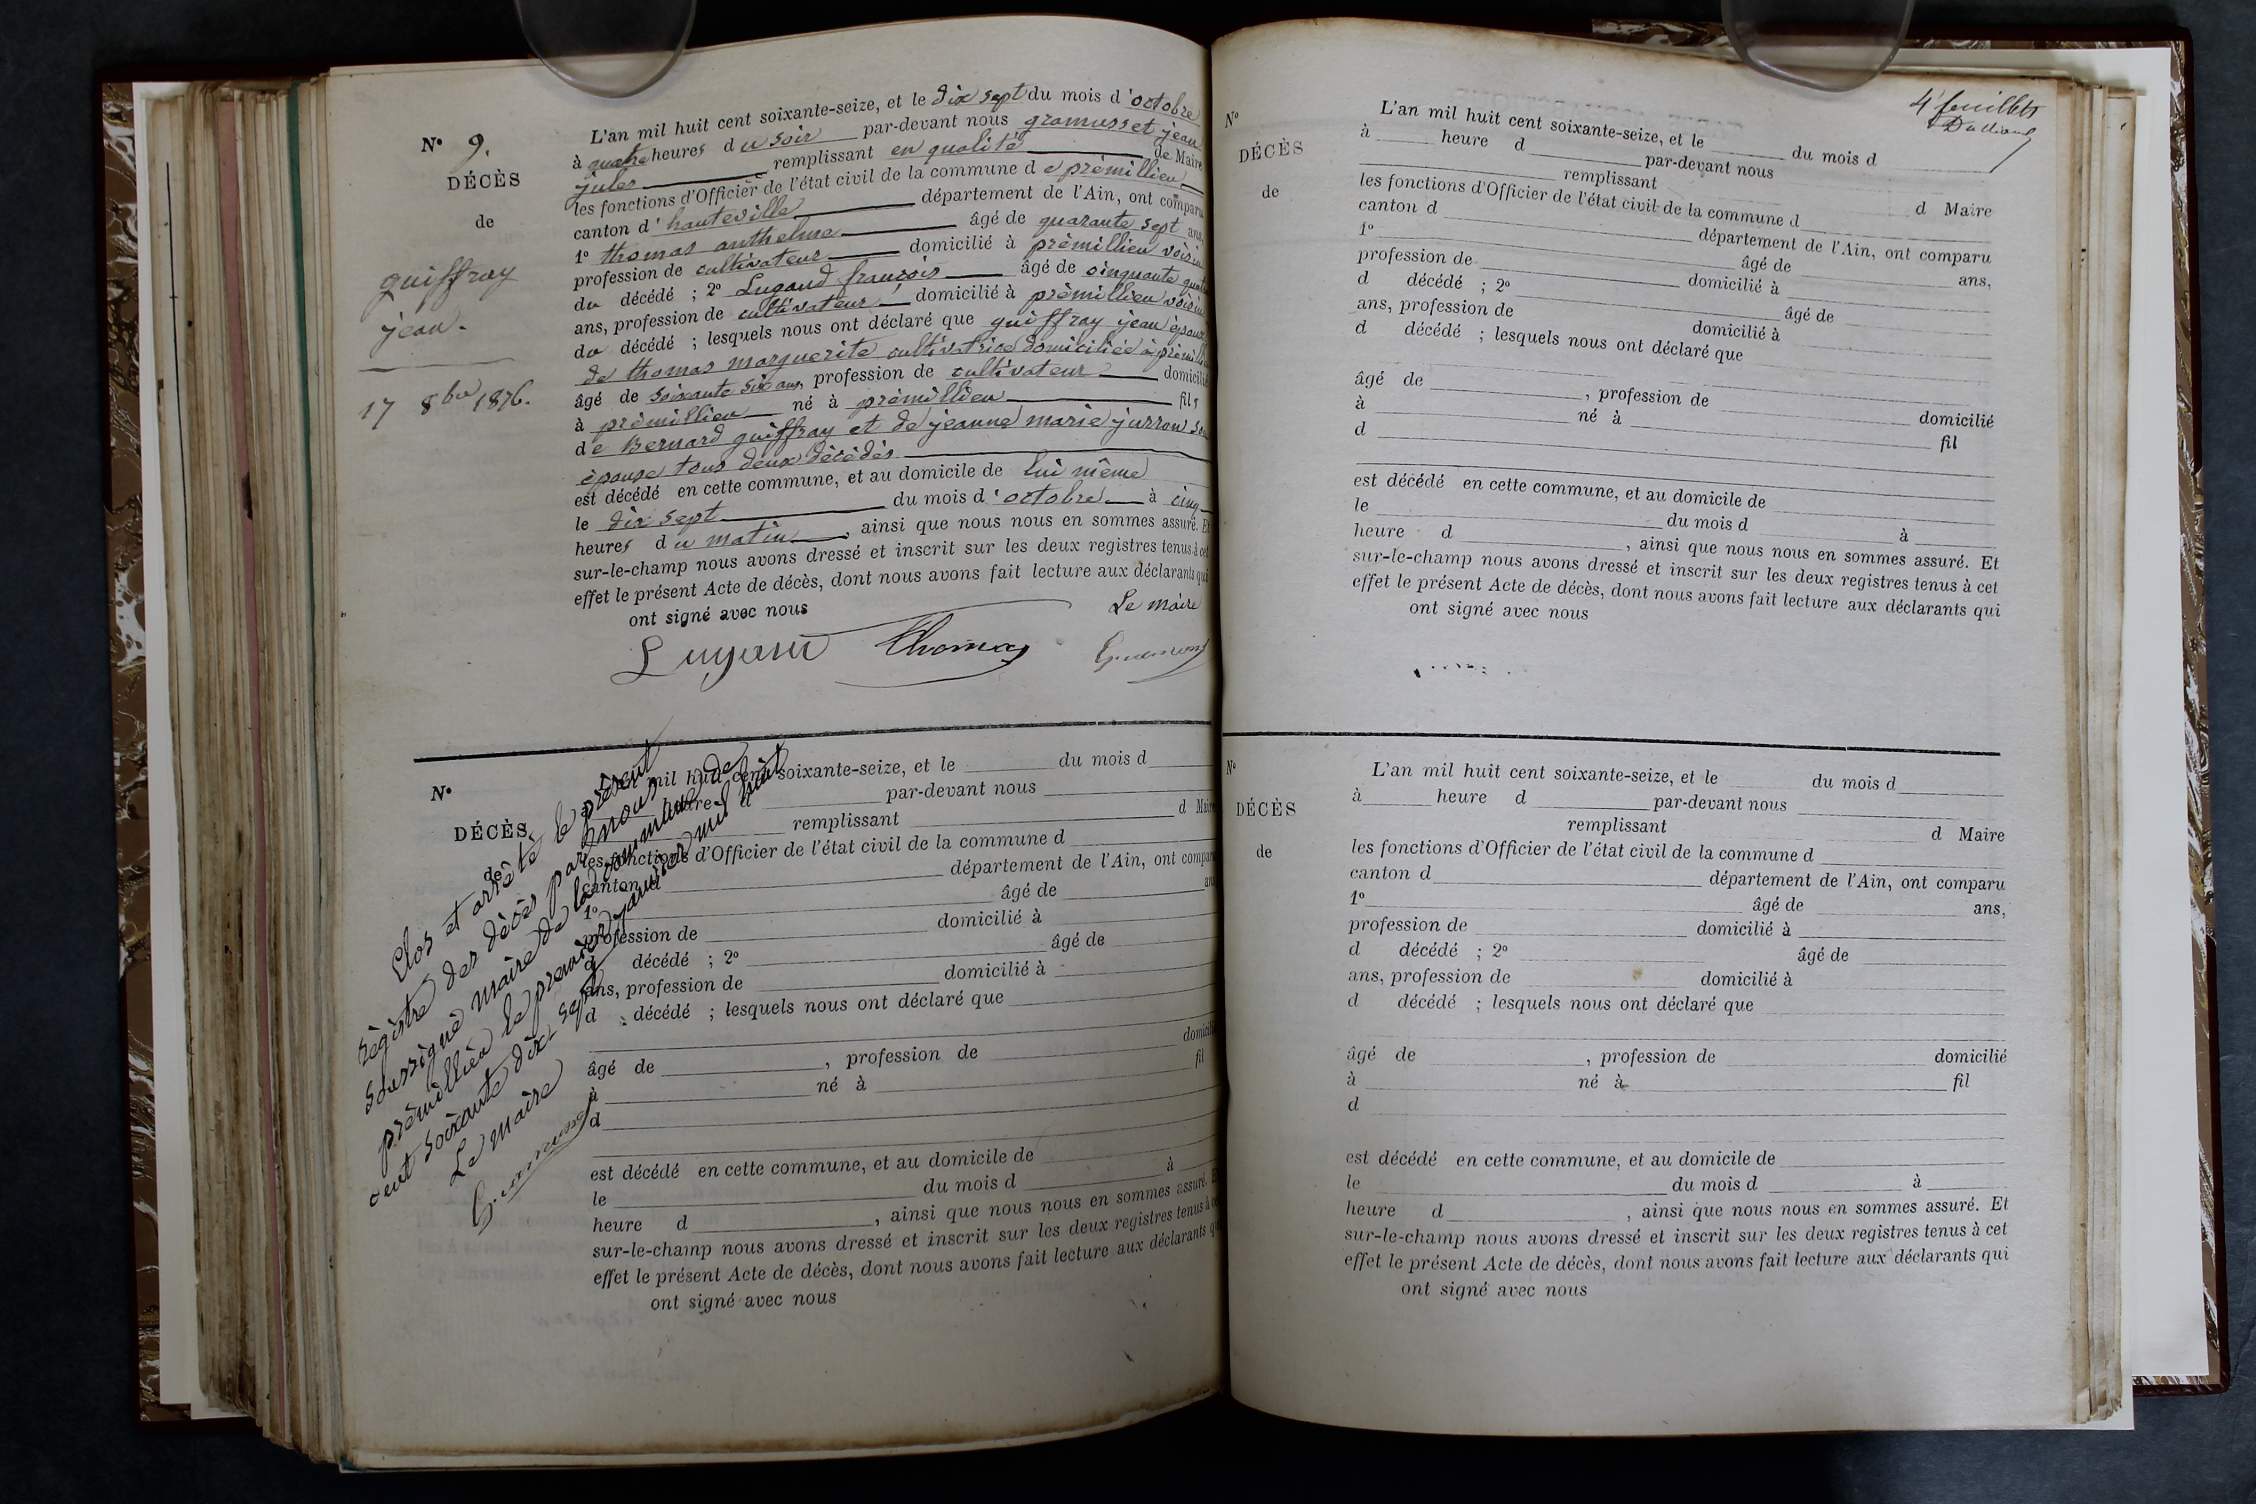 N° 9.
DÉCÈS
de
guiffray
jean.
17 8bre 1876.
L'an mil huit cent soixante-seize, et le dix sept du mois d'octobre
à quatre heures du soir par-devant nous gramusset jean
jules remplissant en qualité de Maire
les fonctions d'Officier de l'état civil de la commune de prèmillieu
canton d'hauteville département de l'Ain, ont comparu
1° thomas anthelme âgé de quarante sept ans,
profession de cultivateur domicilié à prèmillieu voisin
du décédé ; 2° Lugand françois âgé de cinquante quatre
ans, profession de cultivateur domicilié à prèmillieu voisin
du décédé ; lesquels nous ont déclaré que guiffray jean époux
de thomas marguerite cultivatrice domiciliée à prèmillieu
âgé de soixante six ans, profession de cultivateur domicilié
à prèmillieu né à prèmillieu fils
de Bernard guiffray et de jeanne marie jurron son
èpouse tous deux dècèdès
est décédé en cette commune, et au domicile de lui même
le dix sept du mois d'octobre à cinq
heures du matin, ainsi que nous nous en sommes assuré. Et
sur-le-champ nous avons dressé et inscrit sur les deux registres tenus à cet
effet le présent Acte de décès, dont nous avons fait lecture aux déclarants qui
ont signé avec nous
Le maire
Lugand Thomas
N°
DÉCÈS
de
L'an mil huit cent soixante-seize, et le du mois d
à heure d par-devant nous
remplissant d Maire
les fonctions d'Officier de l'état civil de la commune d
canton d département de l'Ain, ont comparu
1° âgé de ans
profession de domicilié à
d décédé ; 2° âgé de
ans, profession de domicilié à
d décédé ; lesquels nous ont déclaré que
domicilié
âgé de , profession de
à né à fil
d
est décédé en cette commune, et au domicile de
le du mois d à
heure d , ainsi que nous nous en sommes assuré. Et
sur-le-champ nous avons dressé et inscrit sur les deux registres tenus à cet
effet le présent Acte de décès, dont nous avons fait lecture aux déclarants qui
ont signé avec nous
Clos et arrêté le présent
règistre des dècès par nous
soussigné maire de la commune de
prèmillieu le premier janvier mil huit
cent soixante dix sept
Le maire
4e feuillet
N°
DÉCÈS
de
L'an mil huit cent soixante-seize, et le du mois d
à heure d par-devant nous
remplissant d Maire
les fonctions d'Officier de l'état civil de la commune d
canton d département de l'Ain, ont comparu
1° âgé de ans,
profession de domicilié à
d décédé ; 2° âgé de
ans, profession de domicilié à
d décédé ; lesquels nous ont déclaré que
âgé de , profession de domicilié
à né à fil
d
est décédé en cette commune, et au domicile de
le du mois d à
heure d , ainsi que nous nous en sommes assuré. Et
sur-le-champ nous avons dressé et inscrit sur les deux registres tenus à cet
effet le présent Acte de décès, dont nous avons fait lecture aux déclarants qui
ont signé avec nous
N°
DÉCÈS
de
L'an mil huit cent soixante-seize, et le du mois d
à heure d par-devant nous
remplissant d Maire
les fonctions d'Officier de l'état civil de la commune d
canton d département de l'Ain, ont comparu
1° âgé de ans,
profession de domicilié à
d décédé ; 2° âgé de
ans, profession de domicilié à
d décédé ; lesquels nous ont déclaré que
âgé de , profession de domicilié
à né à fil
d
est décédé en cette commune, et au domicile de
le du mois d à
heure d , ainsi que nous nous en sommes assuré. Et
sur-le-champ nous avons dressé et inscrit sur les deux registres tenus à cet
effet le présent Acte de décès, dont nous avons fait lecture aux déclarants qui
ont signé avec nous